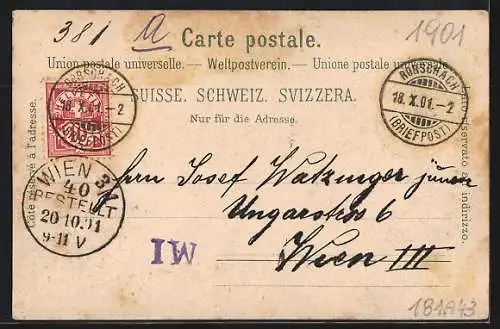 381 a Carte postale. 1901
Union postale universelle. — Weltpostverein. — Unione postale universale.
SUISSE. SCHWEIZ. SVIZZERA.
Nur für die Adresse.
Côté réservé à l'adresse.
Lato riservato all' indirizzo.
RORSCHACH
18.X.01.-2
(BRIEFPOST)
RORSCHACH
18.X.01.-2
(BRIEFPOST)
WIEN 3/1
40
BESTELLT
20.10.01
9-11 V
Herrn Josef Watzinger junior
Ungarstrass 6
Wien III
IM
181A43